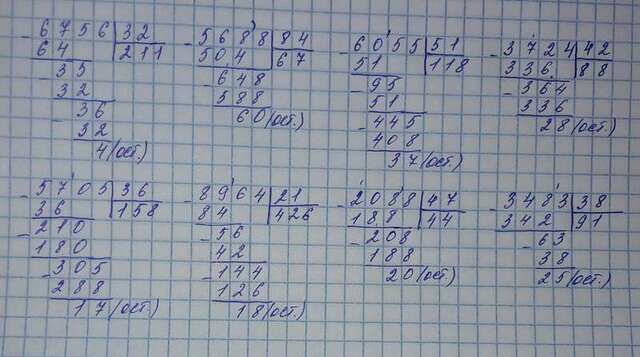 - 6756 | 32
64 | 211
- 35
32
- 36
32
4 (ост.)
- 5688 | 84
504 | 67
- 648
588
60 (ост.)
- 6055 | 51
51 | 118
- 95
51
- 445
408
37 (ост.)
- 3724 | 42
336 | 88
- 364
336
28 (ост.)
- 5705 | 36
36 | 158
- 210
180
- 305
288
17 (ост.)
- 8964 | 21
84 | 426
- 56
42
- 144
126
18 (ост.)
- 2088 | 47
188 | 44
- 208
188
20 (ост.)
- 3483 | 38
342 | 91
- 63
38
25 (ост.)